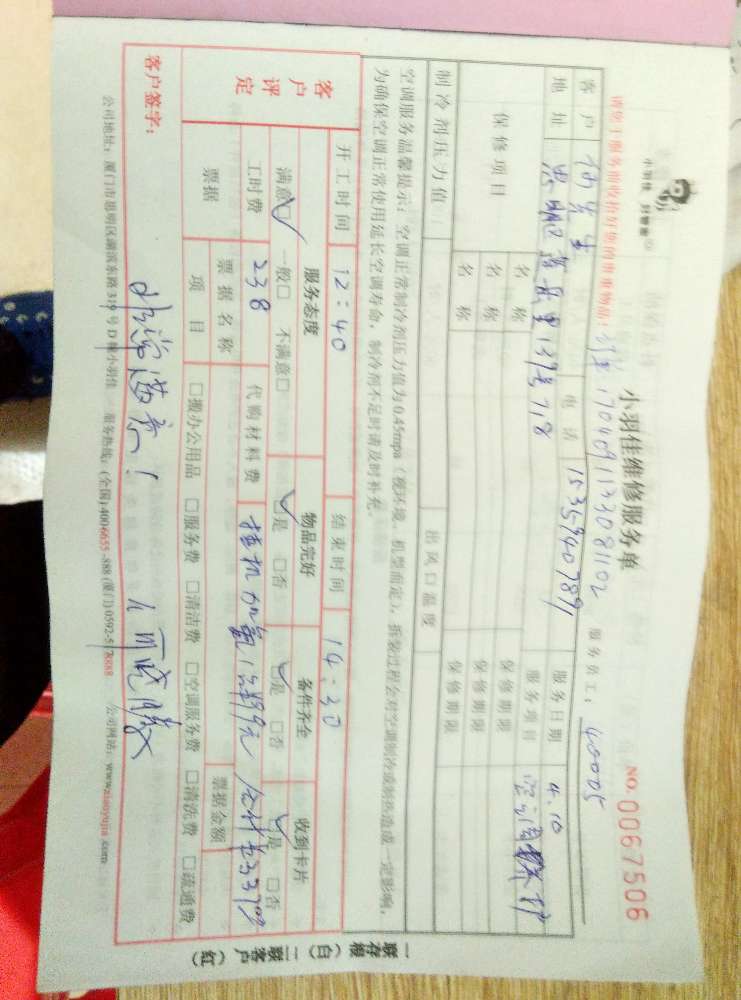 小羽佳维修服务单
NO.0067506
小羽佳 好管家
170409113081102
服务员工:
客户
电话
服务日期 4.10
地址
服务项目
保修项目 名称 保修期限
名称 保修期限
名称 保修期限
制冷剂压力值: 出风口温度
空调服务温馨提示:空调正常制冷剂压力值为0.45mpa(视环境、机型而定),拆装过程会对空调制冷或制热造成一定影响,
为确保空调正常使用延长空调寿命,制冷剂不足时请及时补充。
开工时间 12:40 结束时间 14:30
客户评定 服务态度 物品完好 备件齐全 收到卡片
满意□ 一般□ 不满意□ □是 □否 □是 □否 □是 □否
工时费 238 代购材料费 挂机加氟
票据 票据名称 票据金额
项目 □搬办公用品 □服务费 □清洁费 □空调服务费 □清洗费 □疏通费
客户签字: 非常满意!
公司地址:厦门市思明区湖滨东路319号D栋小羽佳 服务热线:(全国)4006655-888 公司网站:www.xiaoyujia.com
一联存根(白)二联客户(红)